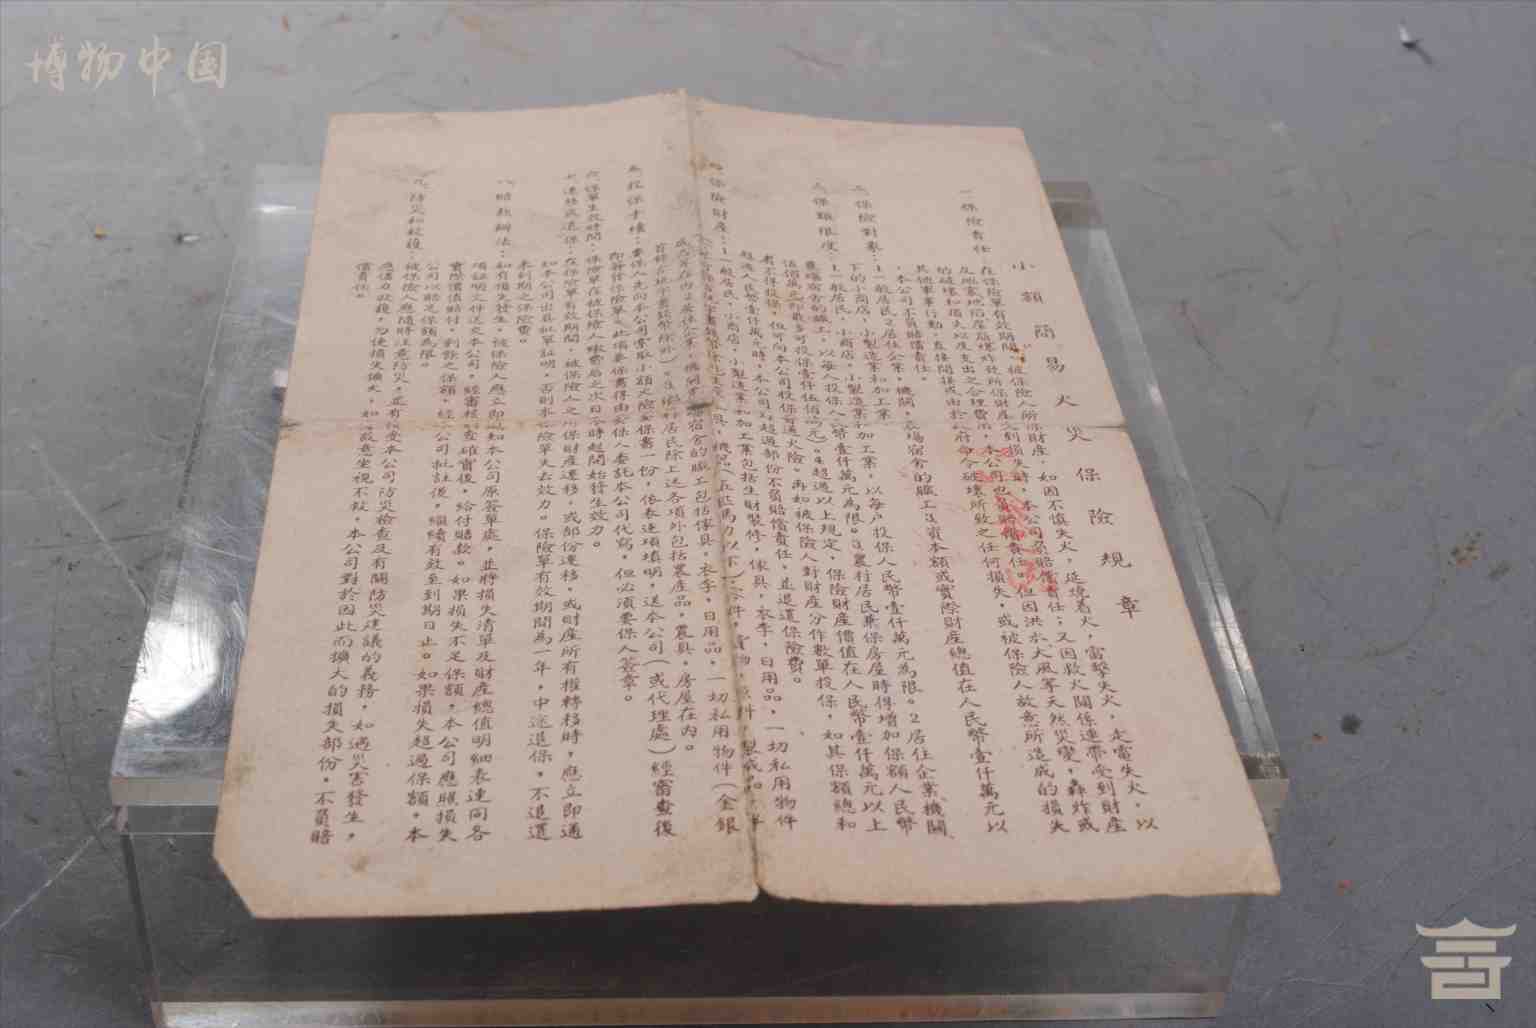 博物中国
小額簡易火災保險規章
一、保險責任：在保險單有效期間，被保險人所保財產，如因不慎失火，延燒着火，雷擊失火，走電失火，以
及地震地陷崖崩爆炸致所保財產受到損失時，本公司負賠償責任；又因救火關係連帶受到財產
的破壞和損失以及支出之合理費用，本公司也負賠償責任。但因洪水大風等天然災變，轟炸或
其他軍事行動，直接間接或由於政府命令破壞所致之任何損失，或被保險人故意所造成的損失
，本公司不負賠償責任。
二、保險對象：1一般居民2居住企業，機關，農場宿舍的職工3資本額或實際財產總值在人民幣壹仟萬元以
下的小商店，小製造業和加工業
三、保額限度：1一般居民，小商店，小製造業和加工業，以每户投保人民幣壹仟萬元為限。2居住企業機關、
農場宿舍的職工，以每人投保人民幣壹仟萬元為限。3農村居民兼保房屋時得增加保額人民幣
伍佰萬元即最多可投保壹仟伍佰萬元）。4超過以上規定，保險財產價值在人民幣壹仟萬元以上
者不得投保，但可向本公司投保普通火險。再如被保險人對財產分作數單投保，如其保額總和
超過人民幣壹仟萬元時，本公司對超過部份不負賠償責任，並退還保險費。
四、保險財產：1一般居民，小商店，小製造業和加工業包括生財裝修，傢具，衣李，日用品，一切私用物件
宿舍的職工包括傢具，衣李，日用品，一切私用物件（金銀
除外）。3農村居民除上述各項外包括農產品，農具，房屋在內。
五、投保手續：要保人先向本公司索取小額火險要保書一份，依表逐項填明，送本公司（或代理處）經審查後
即簽發保險單。此項要保書得由要保人委託本公司代寫，但必須要保人簽章。
六、保單生效時間：保險單在被保險人繳費后之次日零時起開始發生效力。
七、遷移或退保：在保險單有效期間，被保險人之所保財產遷移，或部份遷移，或財產所有權轉移時，應立即通
知本公司出具批單証明，否則本保險單失去效力。保險單有效期間為一年，中途退保，不退還
未到期之保險費。
八、賠款辦法：如有損失發生，被保險人應立即通知本公司原簽單處，並將損失清單及財產總值明細表連同各
項証明文件送交本公司，經審核調查確實後，給付賠款。如果損失不足保額，本公司應照損失
實際價值賠付，剩餘之保額，經本公司批註後，繼續有效至到期日止。如果損失超過保額，本
公司以賠足保額為限。
九、防災和救護：被保險人應隨時注意防災，並有接受本公司防災檢查及有關防災建議的義務，如遇災害發生，
應儘力救護，勿使損失擴大，如故意坐視不救，本公司對於因此而擴大的損失部份，不負賠
償責任。